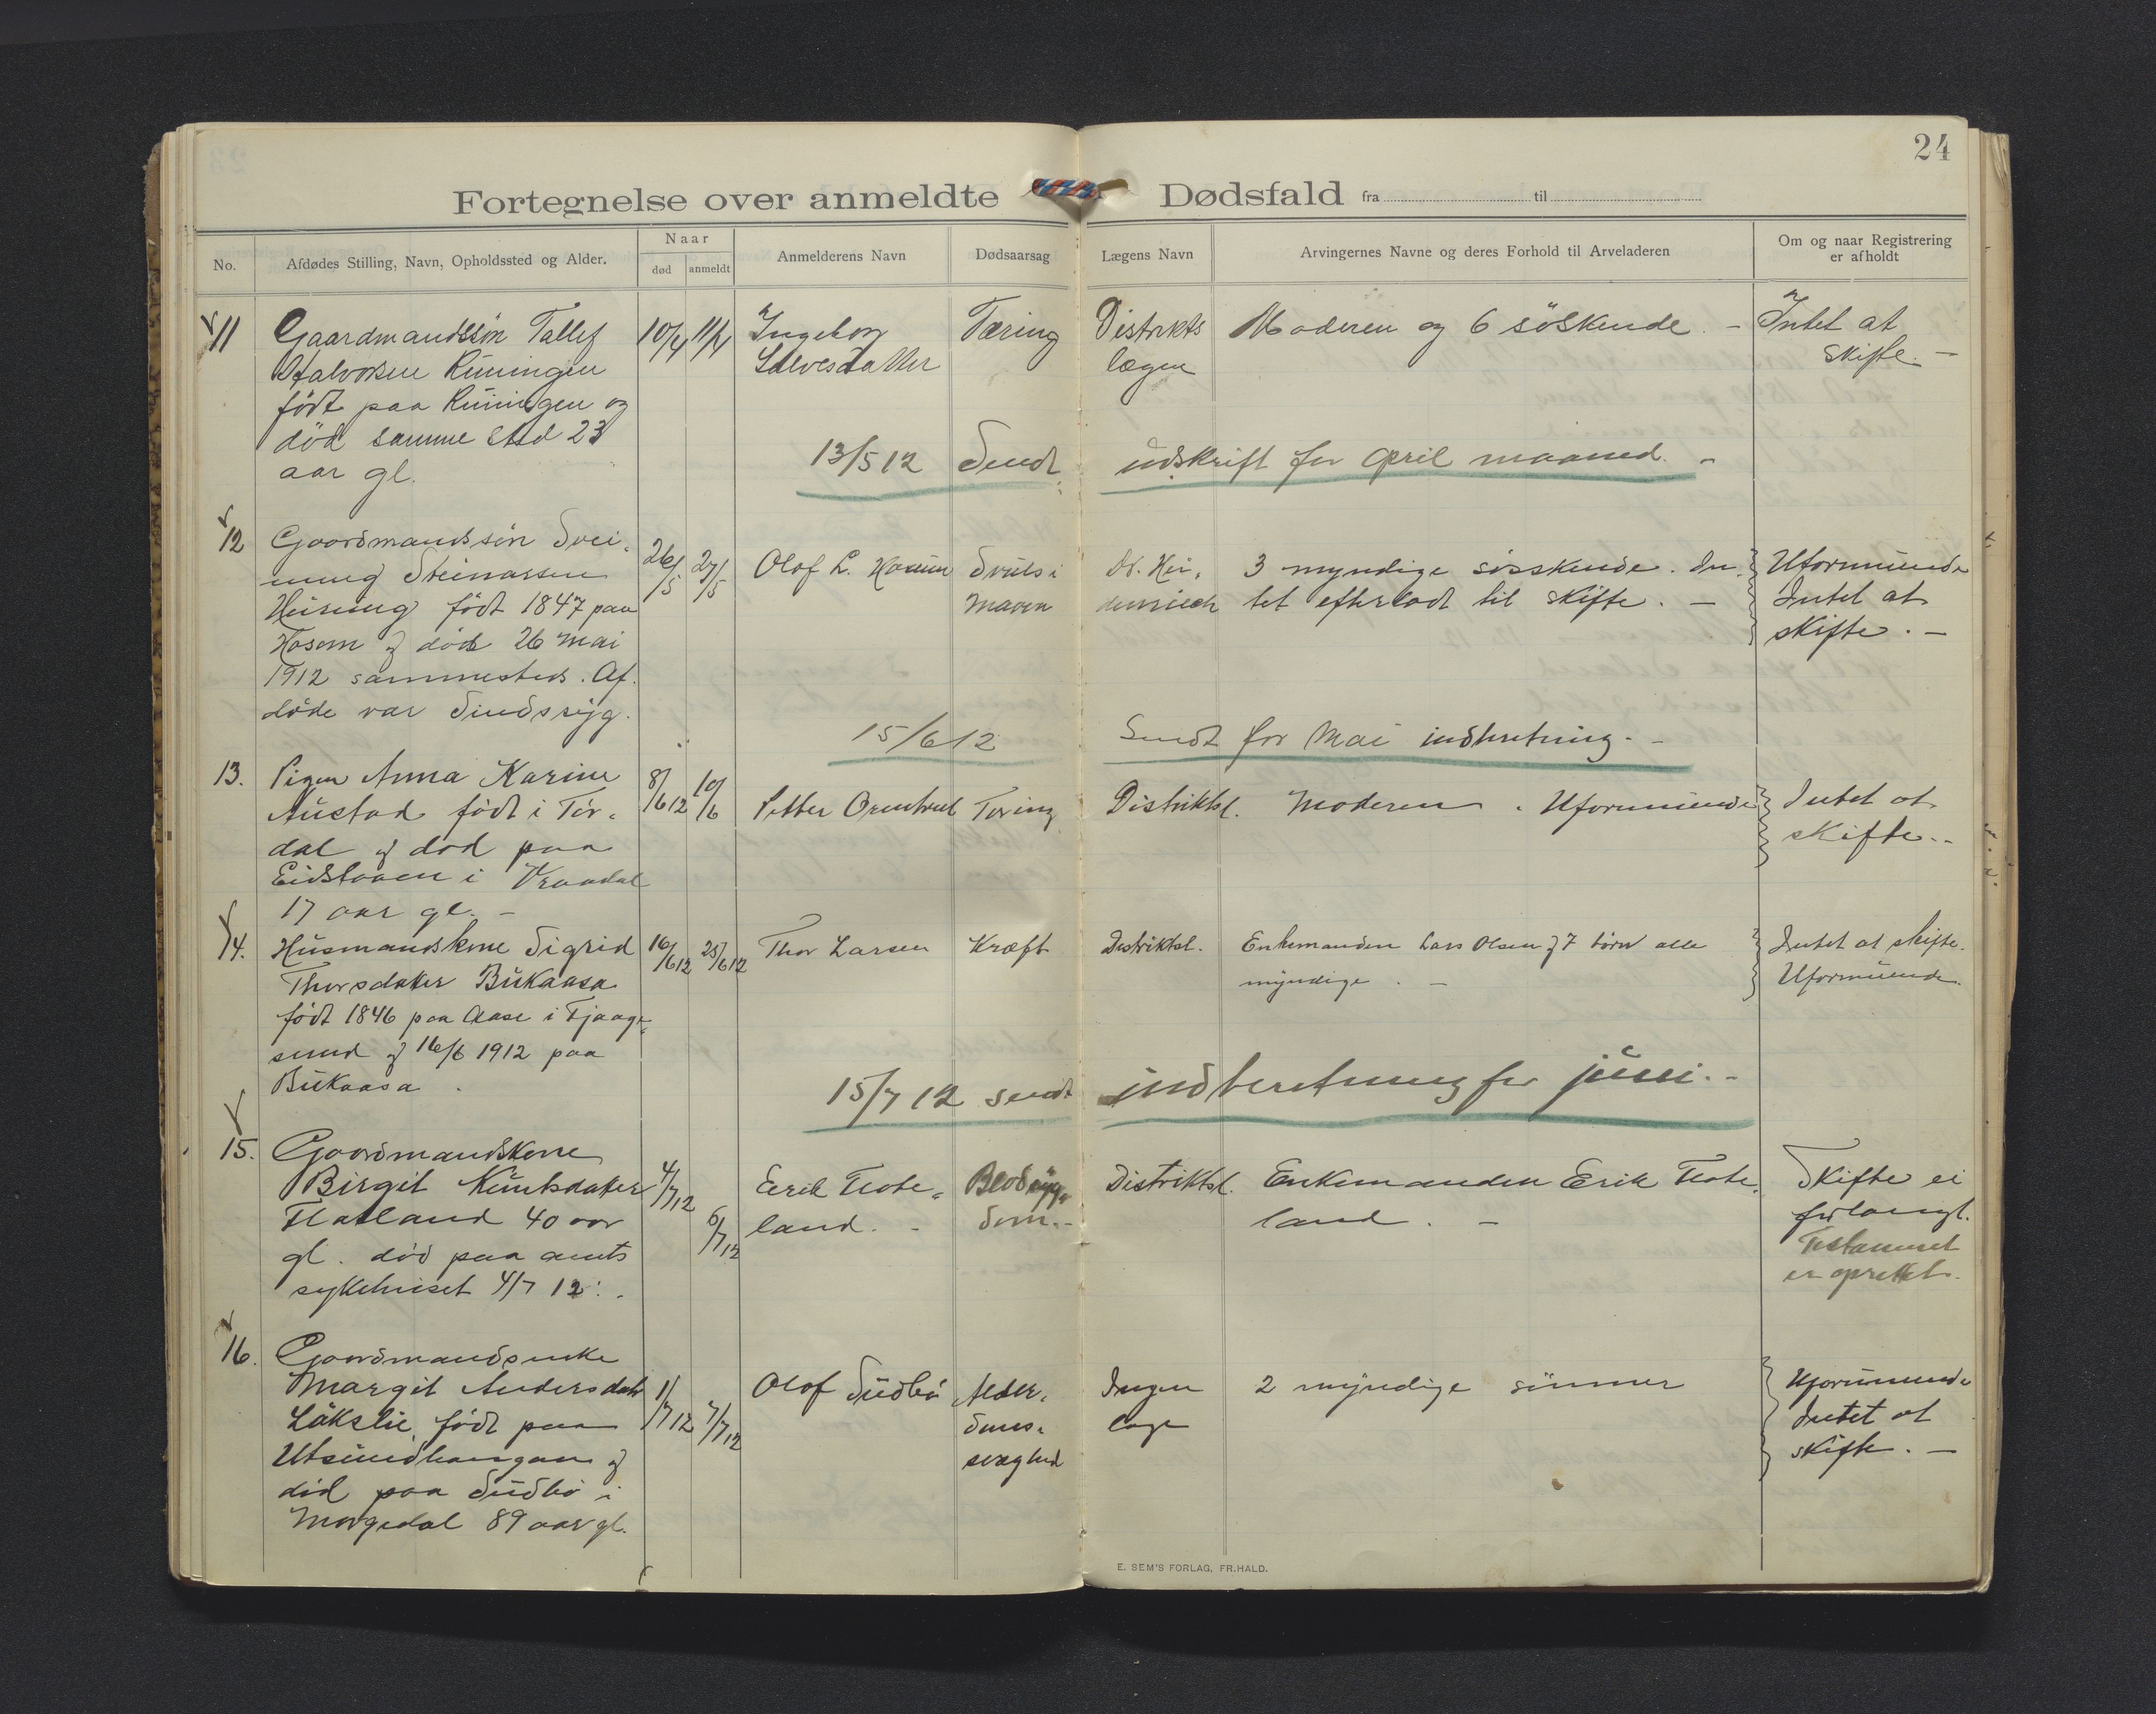 24
Fortegnelse over anmeldte Dødsfald fra til
No.
Afdødes Stilling, Navn, Opholdssted og Alder.
Naar
død
anmeldt
Anmelderens Navn
Dødsaarsag
Lægens Navn
Arvingernes Navne og deres Forhold til Arveladeren
Om og naar Registrering
er afholdt
11
Gaardmandssøn Tallef
Halvorsen Runingen
født paa Runingen og
död samme sted 23
aar gl.
10/4
11/4
Ingeborg
Tæring
Distrikts
lægen
Moderen og 6 söskende. -
Intet at
skifte. -
13/5 12 Sendt udskrift for April maaned. -
12
Gaardmandssön Svei-
nung Steinarssen
født 1847 paa
Hosom og död 26 Mai
1912 sammesteds. Af-
döde var Sindssyg.
26/5
27/5
Olof L.
Svuls i
Maven
Dr.
3 myndige søskende. In-
tet efterladt til skifte. -
Uformuende
Intet at
skifte. -
15/6 12 Sendt for Mai indberetning. -
13.
Pigen Anna Karine
Austad født i Tör-
dal og död paa
Eidstaaen i Vraadal
17 aar gl. -
8/6 12
10/6
Petter
Tæring
Distriktsl.
Moderen. Uformuende
Intet at
skifte. -
14.
Husmandskone Sigrid
Thorsdatter Bukaasa
født 1846 paa Aase i Fjaage-
sund og 16/6 1912 paa
Bukaasa.
16/6 12
25/6 12
Thor Larsen
Kræft
Distriktsl.
Enkemanden Lars Olsen og 7 börn alle
myndige. -
Intet at skifte.
Uformuende.
15/7 12 sendt indberetning for juni. -
15.
Gaardmandskone
Birgit Knutsdatter
Flatland 40 aar
gl. död paa amts
sykehuset 4/7 12. -
4/7 12
6/7 12
Eerik Flate-
land. -
Blodsyg-
dom. -
Distriktsl.
Enkemanden Erik Flate-
land. -
Skifte ei
forlangt.
Testament
er oprettet.
16.
Gaardmandsenke
Margit Andersdatr
Lökslie, født paa
og
död paa Sudbö i
Morgedal 89 aar gl.
1/7 12
7/7 12
Olof Sudbö
Alder-
doms-
svaghed
Ingen
læge
2 myndige sönner
Uformuende
Intet at
skifte. -
E. SEM'S FORLAG, FR.HALD.